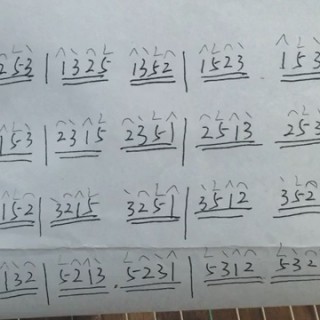 253 | 1325 1352 | 1523 153
153 | 2315 2351 | 2513 253
152 | 3215 3251 | 3512 352
132 | 5213 . 5231 | 5312 532